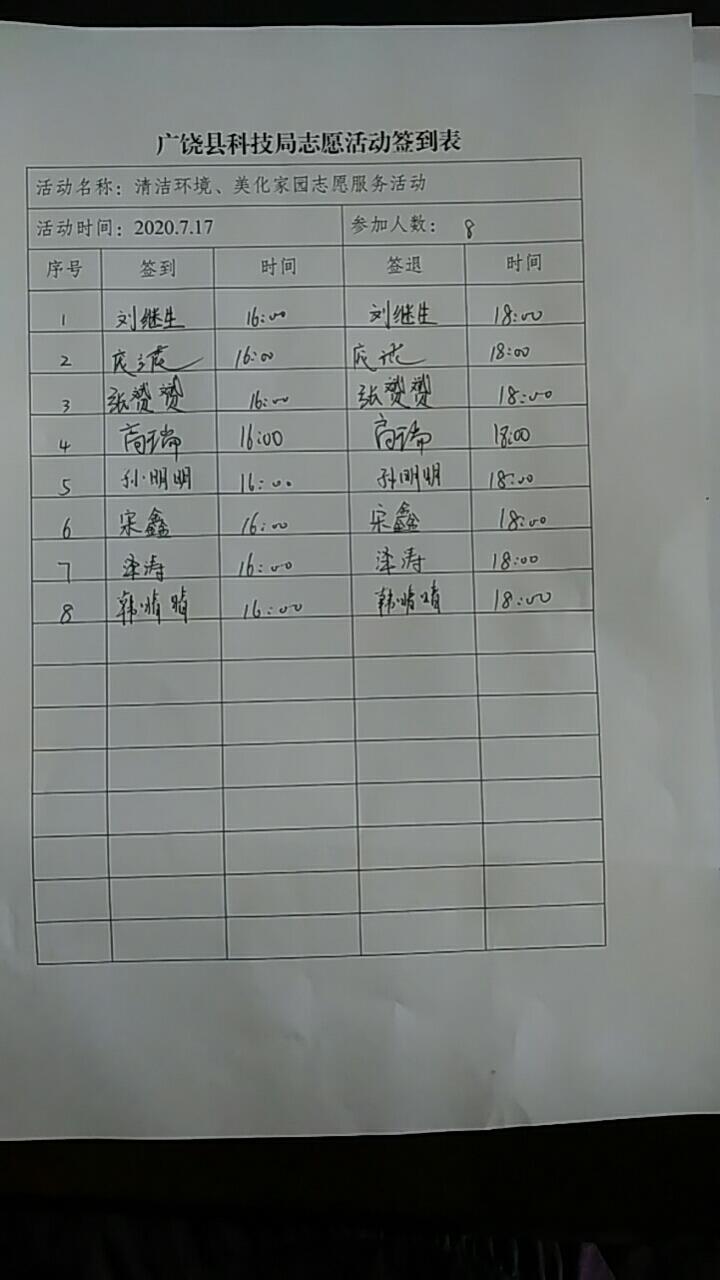 广饶县科技局志愿活动签到表
活动名称：清洁环境、美化家园志愿服务活动
活动时间：2020.7.17 参加人数：8
序号 签到 时间 签退 时间
1 刘继生 16:00 刘继生 18:00
2 16:00 18:00
3 张赟赟 16:00 张赟赟 18:00
4 高瑞 16:00 高瑞 18:00
5 孙明明 16:00 孙明明 18:00
6 宋鑫 16:00 宋鑫 18:00
7 泽涛 16:00 泽涛 18:00
8 韩婧婧 16:00 韩婧婧 18:00